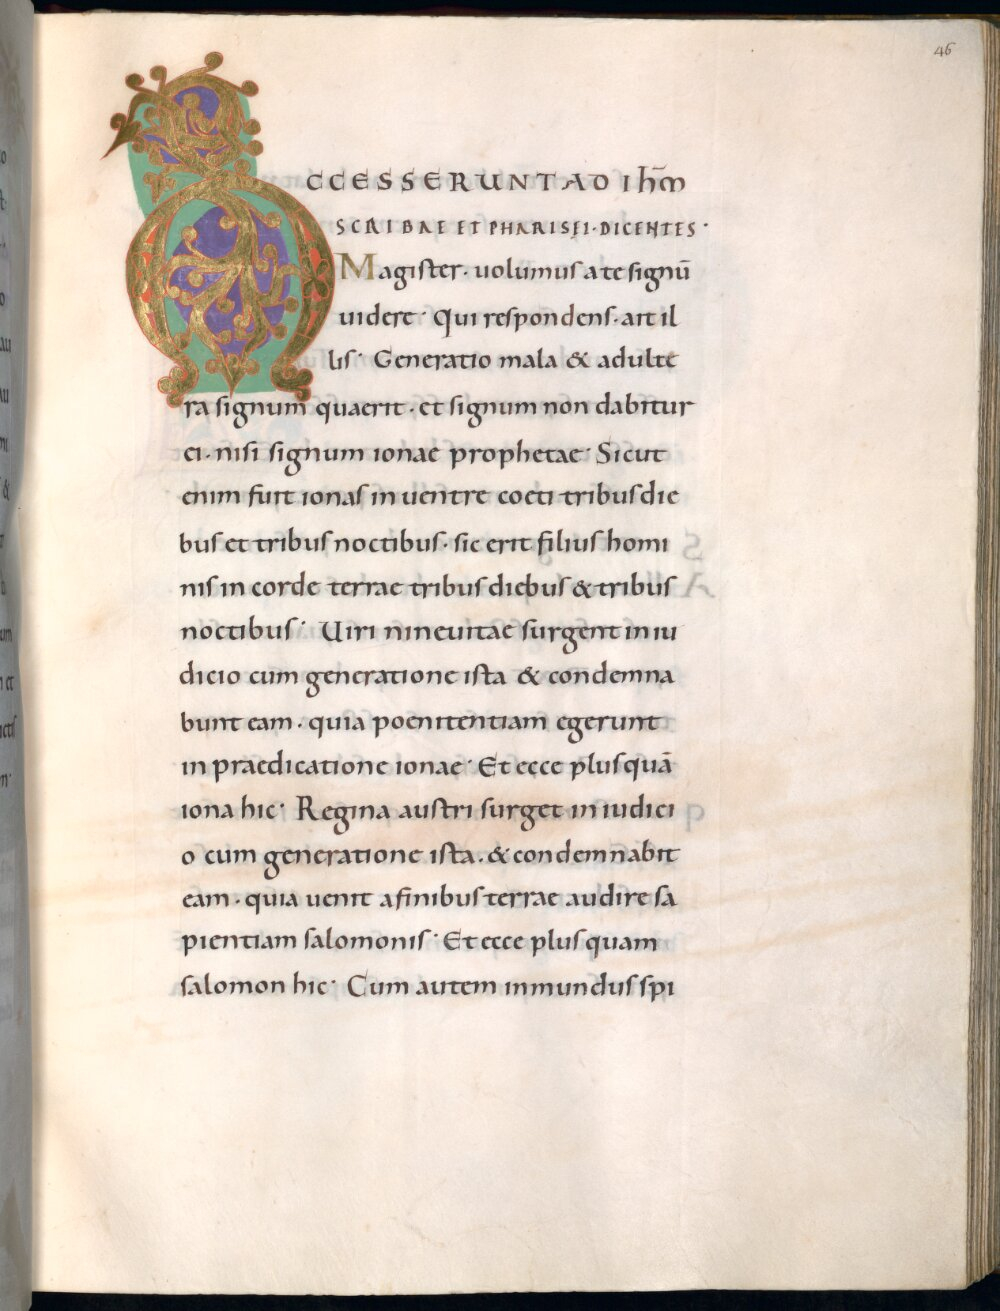 46
ACCESSERUNT AD IHM̄
SCRIBAE ET PHARISEI · DICENTES ·
Magister · uolumus a te signū
uidere · Qui respondens · ait il
lis · Generatio mala & adulte
ra signum quaerit · et signum non dabitur
ei · nisi signum ionae prophetae · Sicut
enim fuit ionas in uentre coeti tribus die
bus et tribus noctibus · sic erit filius homi
nis in corde terrae tribus diebus & tribus
noctibus · Uiri nineuitae surgent in iu
dicio cum generatione ista & condemna
bunt eam · quia poenitentiam egerunt
in praedicatione ionae · Et ecce plus quā
iona hic · Regina austri surget in iudici
o cum generatione ista · & condemnabit
eam · quia uenit a finibus terrae audire sa
pientiam salomonis · Et ecce plus quam
salomon hic · Cum autem inmundus spi